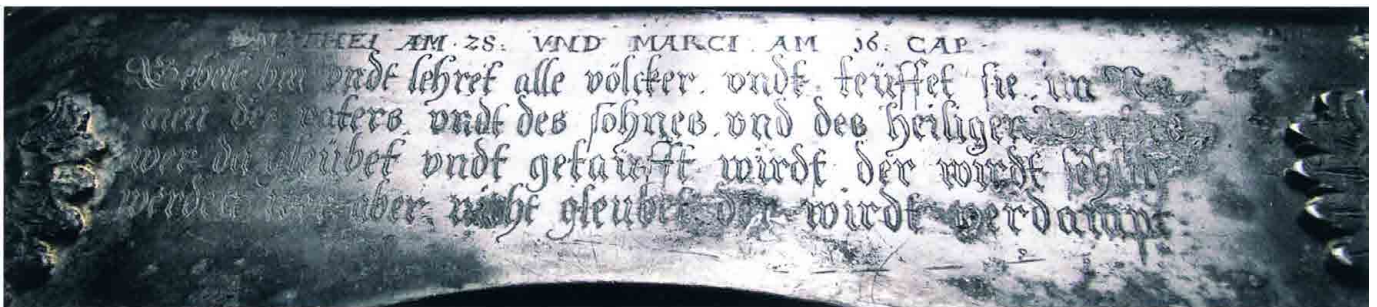 MATTHEI AM · 28 · VND MARCI · AM 16 · CAP ·
Gehett hin vndt lehret alle völcker · vndt · teüffet sie · im Na
men des vaters · vndt des sohnes · vnd des heiligen
wer da gleübet vndt getaüfft würdt der wirdt sehlig
werden wer aber nicht gleübet der wirdt verdampt